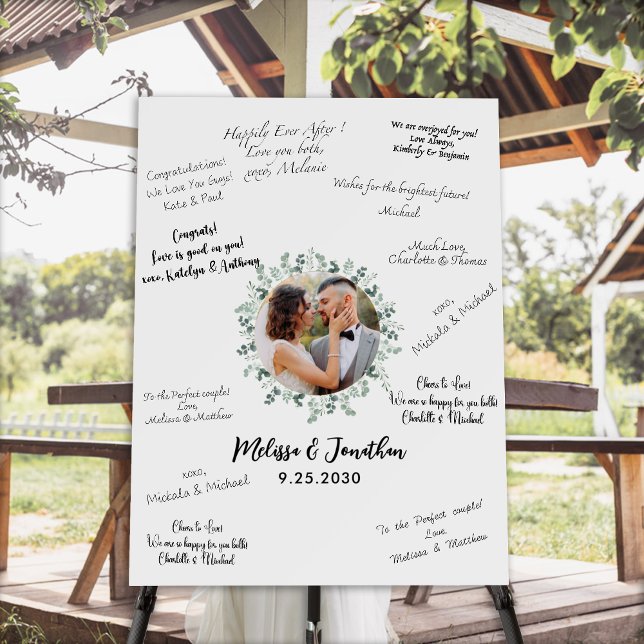 Happily Ever After !
Love you both,
xoxo, Melanie
We are overjoyed for you!
Love Always,
Kimberly & Benjamin
Congratulations!
We Love You Guys!
Kate & Paul
Wishes for the brightest future!
Michael
Congrats!
Love is good on you!
xoxo, Katelyn & Anthony
Much Love,
Charlotte & Thomas
xoxo,
Mickala & Michael
To the Perfect couple!
Love,
Melissa & Matthew
Cheers to Love!
We are so happy for you both!
Charlotte & Michael
Melissa & Jonathan
9.25.2030
xoxo,
Mickala & Michael
Cheers to Love!
We are so happy for you both!
Charlotte & Michael
To the Perfect couple!
Love,
Melissa & Matthew